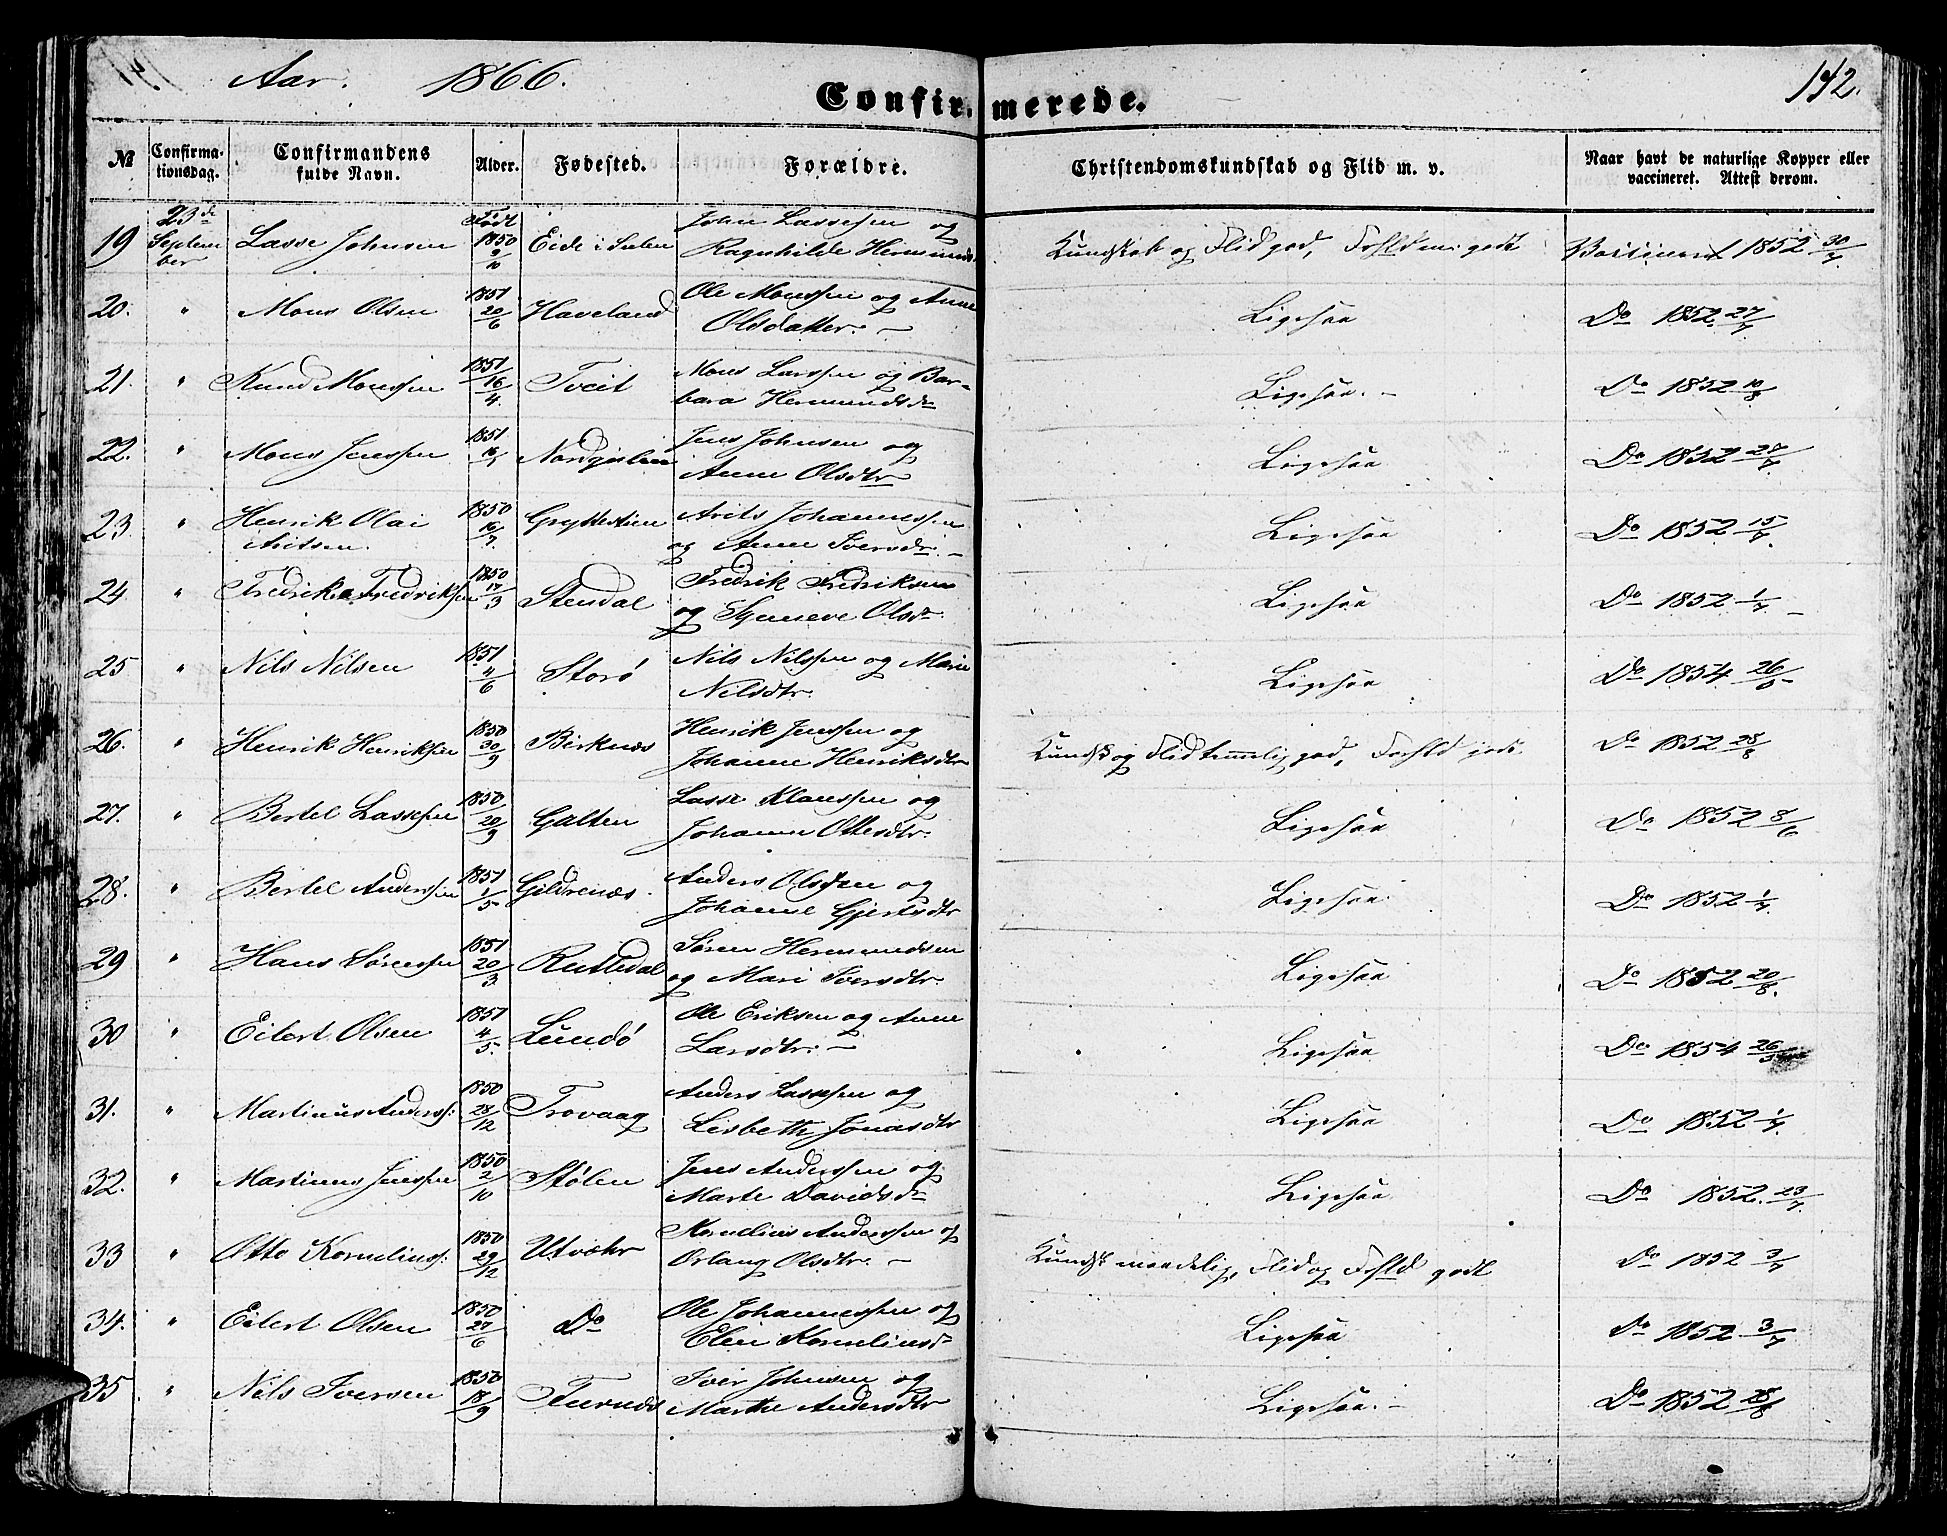 Aar. 1866.
Confirmerede.
142.
№ Confirmationsdag. Confirmandens fulde Navn. Alder. Fødested. Forældre. Christendomskundskab og Flid m. v. Naar havt de naturlige Kopper eller vaccineret. Attest derom.
19 23de September Lasse Johnsen Født 1850 9/10 Eide i Sulen John Lassesen og Ragnhilde Hermunds Kundskab og Flid god, Forhld m: godt 1852 30/7
20. " Mons Olsen 1851 20/6 Haveland Ole Monssen og Anne Olsdatter. – Ligesaa Do 1852. 27/7
21. " Knud Monssen 1851 16/4. Tveit Mons Larssen og Barbara Hermundsdr Ligesaa. – Do 1852 10/8
22. " Mons Jenssen 1851 Jens Johnsen og Anne Olsdtr Ligesaa Do 1852
23. " Henrik Olai Aritsen. 1850 16/7. Gryttestien Arits Johannessen og Anne Iversdr. – Ligesaa Do 1852 15/7.
24. " Fredrik Fredriksen 1850 17/3 Stensdal Fredrik Fredriksen og Synneve Olsdr. Ligesaa Do 1852 1/7 –
25 " Nils Nilsen 1851 4/6 Storø Nils Nilssen og Marie Nilsdtr. Ligesaa Do 1854 26/5
26. " Henrik Henrikssen 1850 30/9 Birknæs Henrik Jenssen og Johanne Henriksdtr Kundsk og Flid temmelig god, Forhld godt. Do 1852 28/8
27. " Bertel Lassesen 1850 20/9 Galten Lasse Klaussen og Johanne Ottesdtr. Ligesaa Do 1852 8/6
28. " Bertel Anderssen 1851 1/5 Gildrenæs. Anders Olssen og Johanne Gjertsdtr Ligesaa Do 1852 1/7.
29 " Hans Sørenssen 1851 20/3 Rutledal Søren Hermundsen og Mari Iversdtr. Ligesaa Do 1852 20/8.
30 " Eilert Olsen 1851 4/5. Lundø Ole Eriksen og Anne Larsdtr: – Ligesaa Do 1854 26/5
31. " Martinus Anderss: 1850 28/12 Trovaag Anders Lassesen og Lisbette Jonasdtr Ligesaa Do 1852 1/7.
32. " Martinus Jenssen 1850 2/10 Stølen Jens Anderssen og Marte Davidsdr Ligesaa Do 1852. 23/7.
33 " Otto Korneliuss: 1850 29/12 Utvær Kornelius Anderssen og Orlaug Olsdtr. – Kundsk maadelig, Flid og Forhld godt Do 1852 3/7
34. " Eilert Olsen 1850 27/6 Do Ole Johannessen og Elen Korneliusdr Ligesaa Do 1852 3/7
35 " Nils Iversen 1850 18/9 Iver Johnsen og Marthe Andersdtr Ligesaa. – Do 1852 28/8